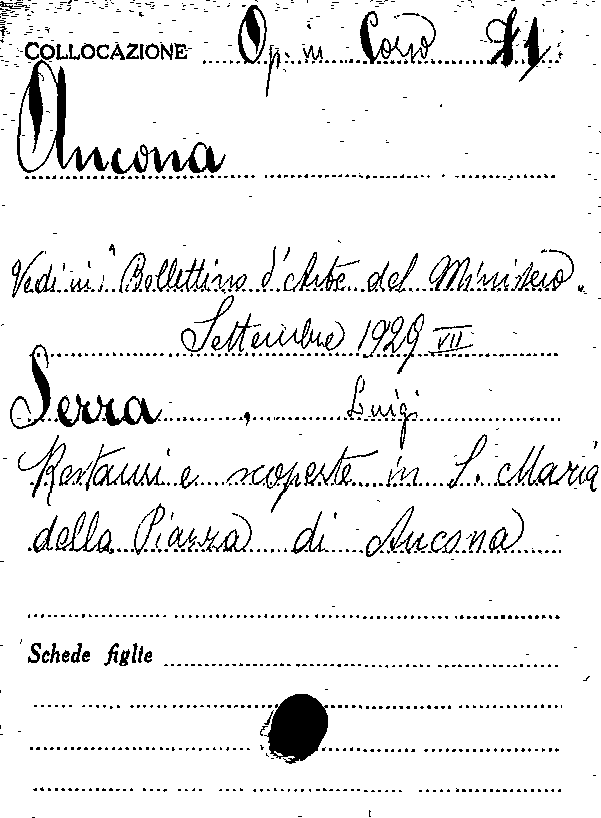 COLLOCAZIONE Op. in Corso 71
Ancona
Vedi in: "Bollettino d'Arte del Ministero.
Settembre 1929 VII
Serra, Luigi
Restauri e scoperte in S. Maria
della Piazza di Ancona
Schede figlie